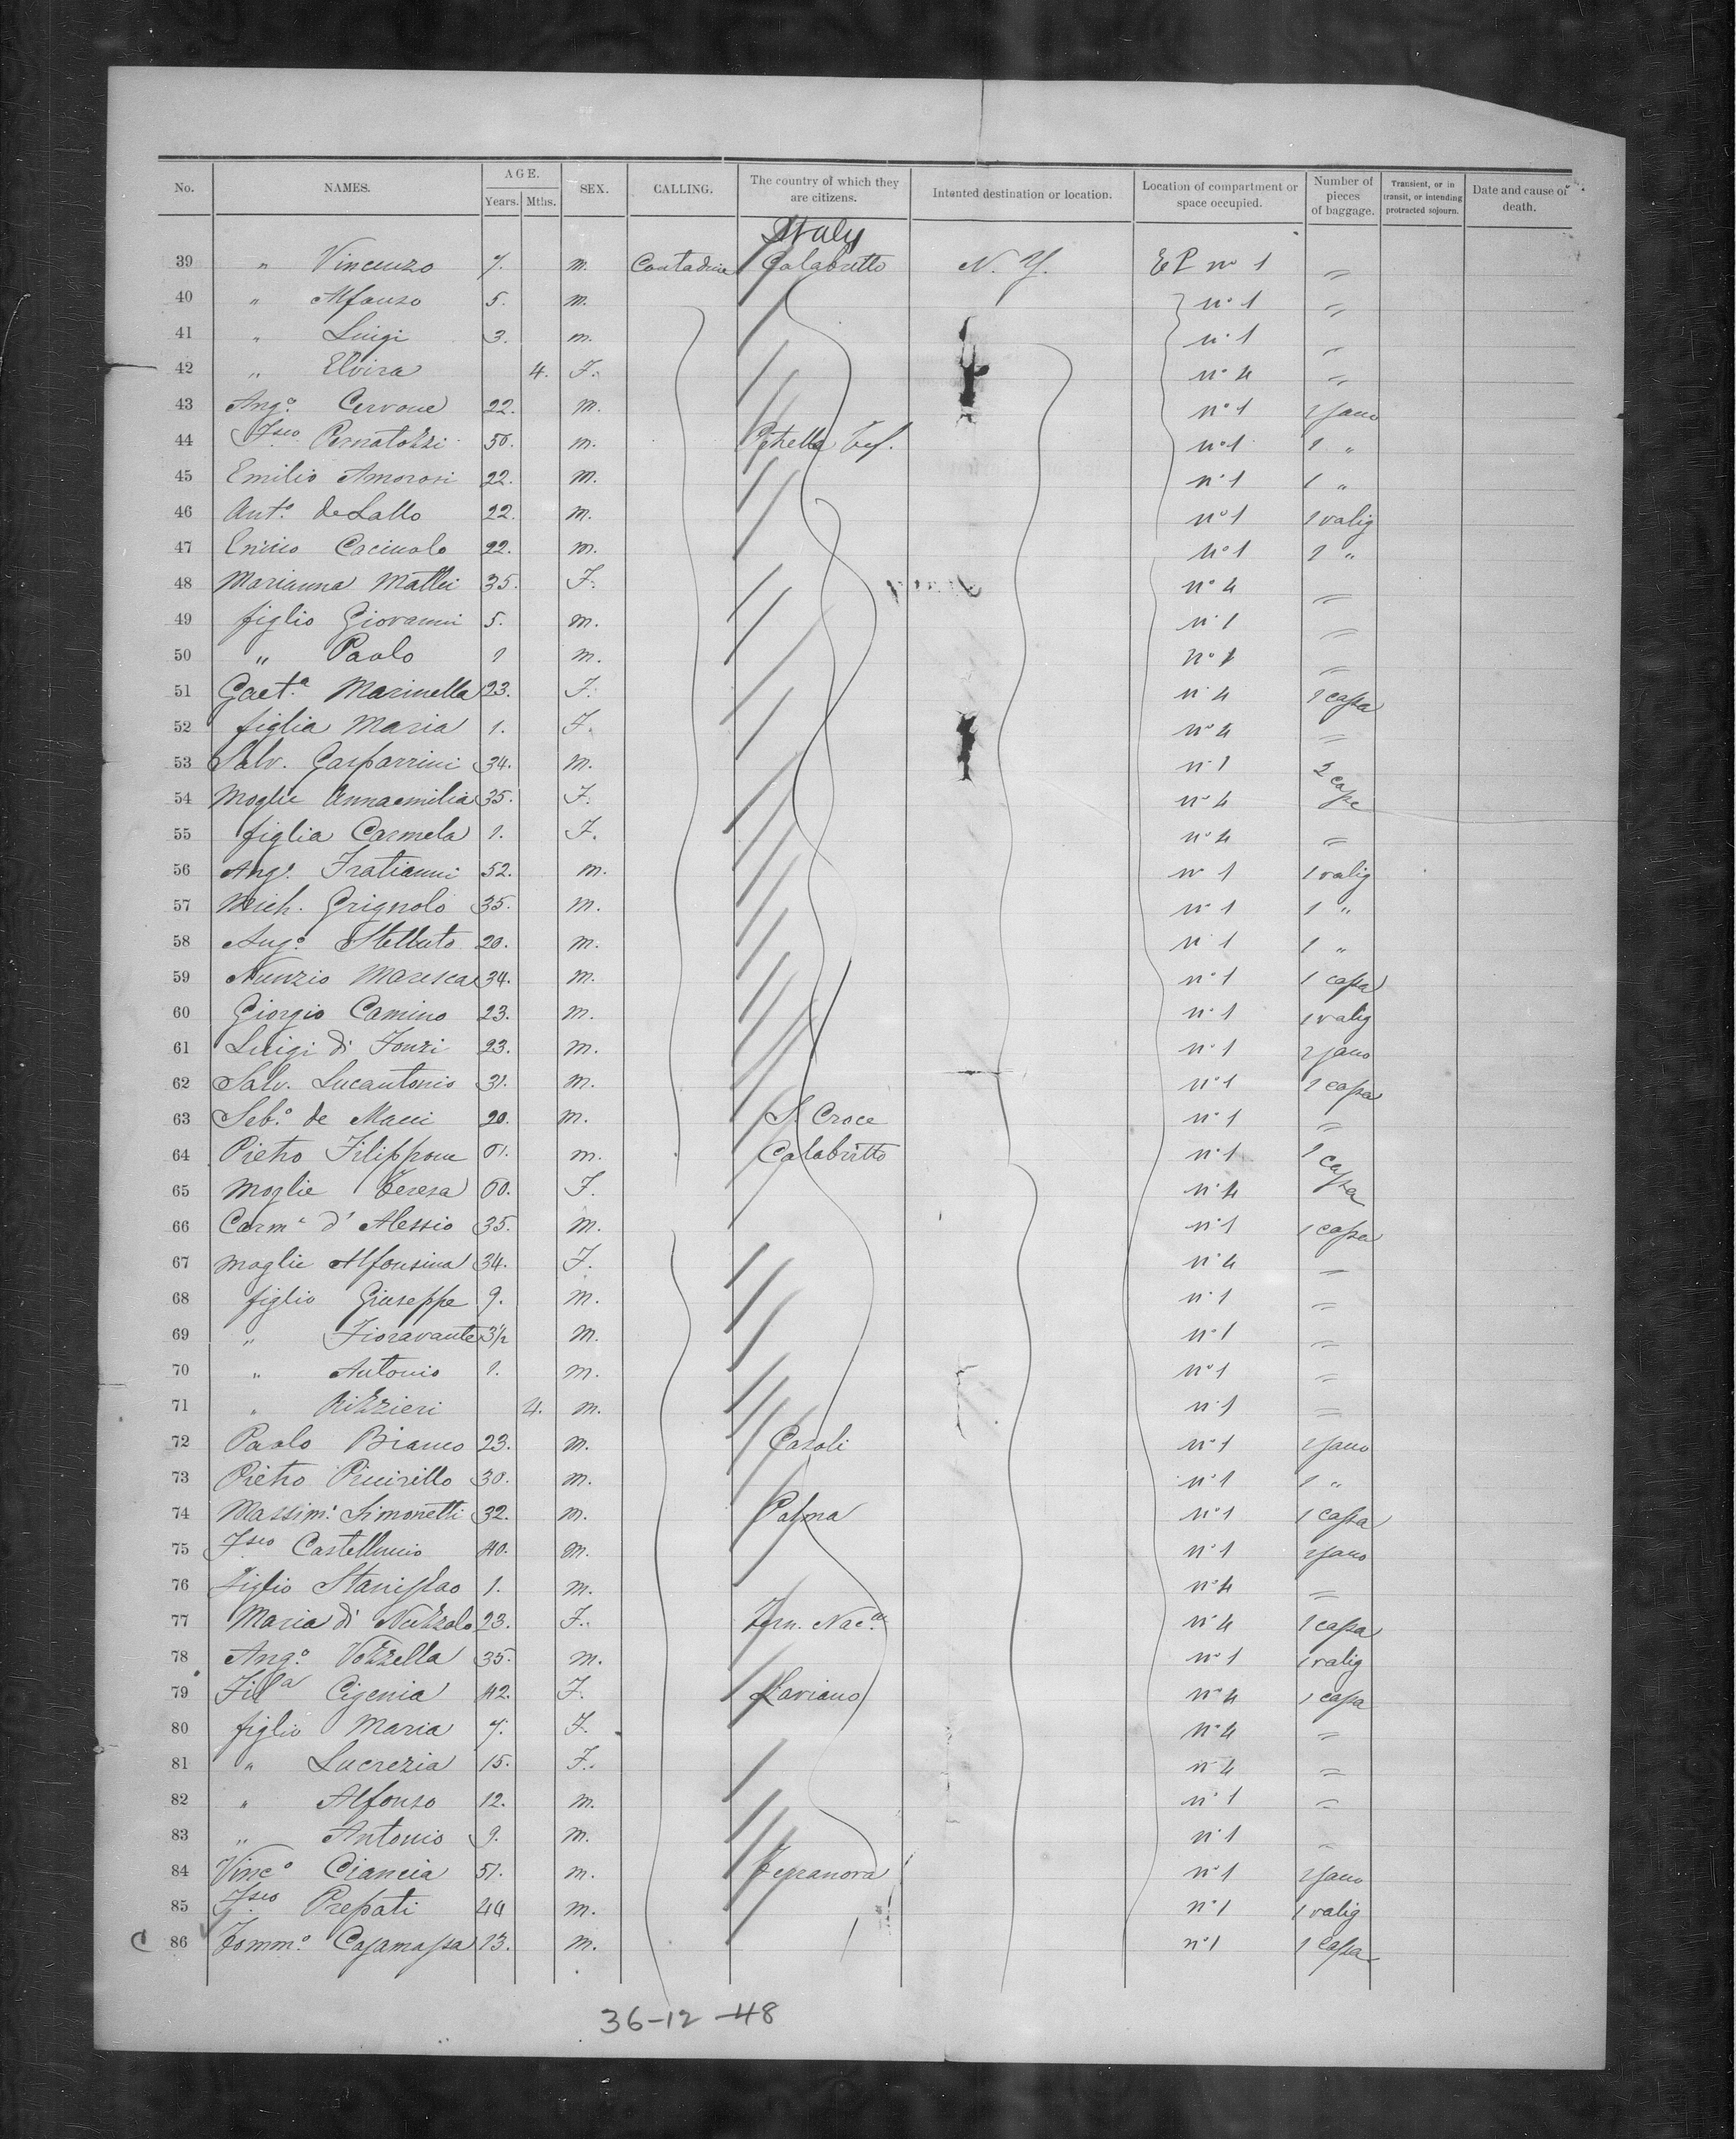 No. NAMES. AGE. Years. Mths. SEX. CALLING. The country of which they are citizens. Intanted destination or location. Location of compartment or space occupied. Number of pieces of baggage. Transient, or in transit, or intending protracted sojourn. Date and cause of death.
Italy
39 " Vincenzo 7. m. Contadine Calabritto N. Y. E P nº 1 "
40 " Alfonso 5. m. nº 1 "
41 " Luigi 3. m. nº 1 "
42 " Elvira 4. F. nº 4 "
43 Angº Cervone 22. m. nº 1
44 Fsco Pernatozzi 50. m. Petrella Tif. nº 1 1 "
45 Emilio Amorosi 22. m. nº 1 1 "
46 Antº deLallo 22. m. nº 1 1 valig
47 Enrico 22. m. nº 1 1 "
48 Marianna Mattei 35. F. nº 4 "
49 figlio Giovanni 5. m. nº 1 "
50 " Paolo 1 m. nº 1 "
51 Gaet.a Marinella 23. F. nº 4 1 cassa
52 figlia Maria 1. F. nº 4 "
53 Salv. Gasparrini 34. m. nº 1 2 casse
54 Moglie Annaemilia 35. F. nº 4
55 figlia Carmela 1. F. nº 4 "
56 Angº Fratianni 52. m. nº 1 1 valig
57 Mich. Grignolo 35. m. nº 1 1 "
58 Angº Stelluto 20. m. nº 1 1 "
59 Nunzio Maresca 34. m. nº 1 1 cassa
60 Giorgio Camino 23. m. nº 1 1 valig
61 Luigi di Fonzi 23. m. nº 1
62 Salv. Lucantonio 31. m. nº 1 1 cassa
63 Sebº de Maui 20. m. S. Croce nº 1 "
64 Pietro Filippone 61. m. Calabritto nº 1 1 cassa
65 Moglie Teresa 60. F. nº 4
66 Carmº d'Alessio 35. m. nº 1 1 cassa
67 moglie Alfonsina 34. F. nº 4 "
68 figlio Giuseppe 9. m. nº 1 "
69 " Fioravante 3½ m. nº 1 "
70 " Antonio 1. m. nº 1 "
71 " Rizzieri 4. m. nº 1 "
72 Paolo Bianco 23. m. Casoli nº 1
73 Pietro Piccirillo 30. m. nº 1 1 "
74 Massimº Simonetti 32. m. Palma nº 1 1 cassa
75 Fsco Castelluccio 40. m. nº 1
76 Figlio Stanislao 1. m. nº 4 "
77 Maria di Nuzzolo 23. F. nº 4 1 cassa
78 Angº Vozzella 35. m. nº 1 1 valig
79 Fil.a Cigenia 42. F. Laviano nº 4 1 cassa
80 figlio Maria 7. F. nº 4 "
81 " Lucrezia 15. F. nº 4 "
82 " Alfonso 12. m. nº 1 "
83 " Antonio 9. m. nº 1 "
84 Vincº Ciancia 51. m. nº 1
85 Fsco Prepati 44 m. nº 1 1 valig
C 86 Tommº Casamassa 13. m. nº 1 1 cassa
36-12-48